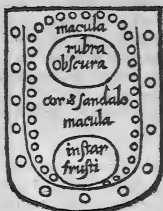 macula
rubra
obscura
cor & sandalo
macula
instar
frusti